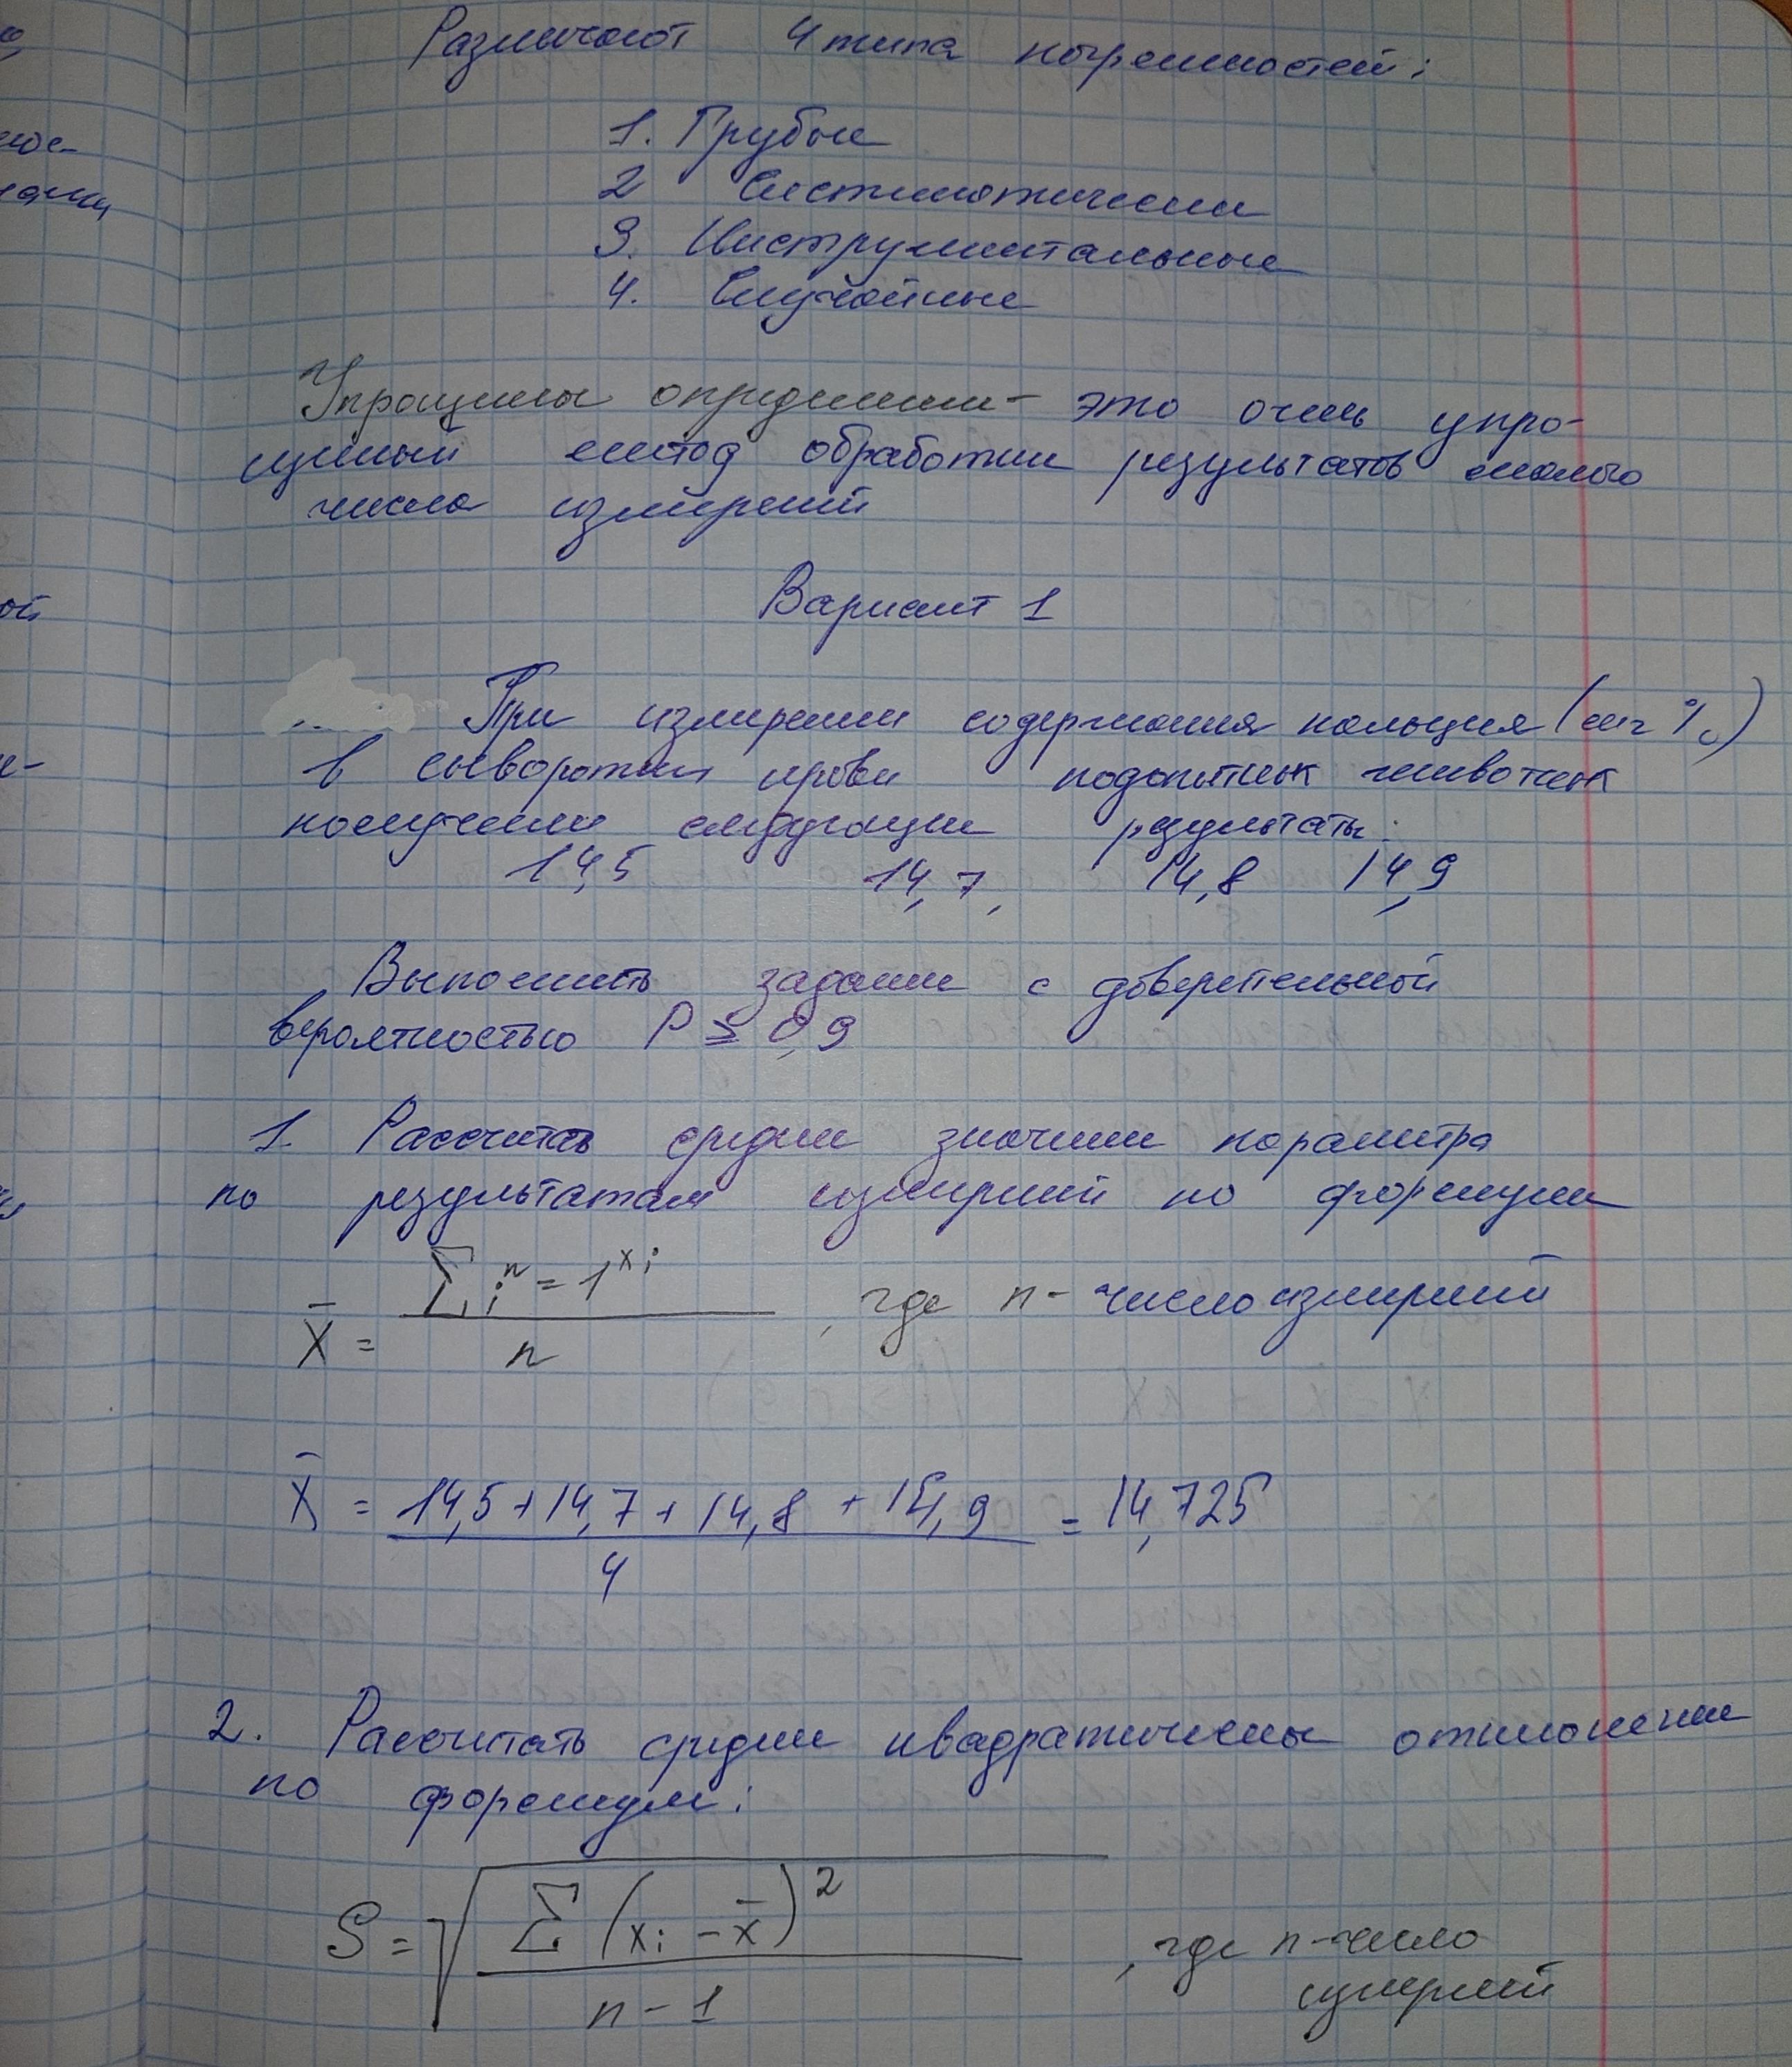 Различают 4 типа погрешностей:
1. Грубые
2 Систиматически
3. Инструментальные
4. Случайные
Упрощены определении - это очень упро-
щеный метод обработки результатов малого
числа измерений
Вариант 1
При измерении содержания кальция (мг %)
в сыворотки крови подопытных животных
получили следующие результаты:
14,5 14,7, 14,8 14,9
Выполнить задание с доверительной
вероятностью P ≥ 0,9
1. Рассчитав средние значении параметра
по результатам измерений по формули
X̄ = Σ i^n = 1^xi / n , где n - число измерений
X̄ = 14,5 + 14,7 + 14,8 + 14,9 / 4 = 14,725
2. Рассчитать средние квадратичены отклонении
по формули:
S = √ Σ (xi - x̄)² / n - 1 , где n - число
измерений